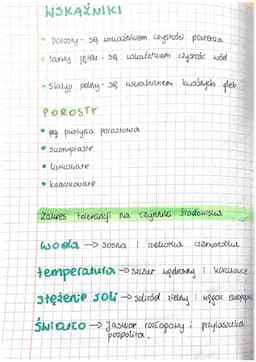 WSKAŹNIKI
porosty - są wskaźnikiem czystości powietrza
larwy jętek - są wskaźnikiem czystości wód
skrzyp polny - są wskaźnikiem kwaśnych gleb
POROSTY
pą plastyka porostowa
skorupiaste
listkowate
krzaczkowate
Zakres tolerancji na czynniki środowiska
woda → sosna i rzekotka
temperatura → szczur wędrowny i koralowce
stężenie soli → soliród zielny i węgorz europejski
ŚWIATŁO → jaskier rozłogowy i przylaszczka
pospolita.